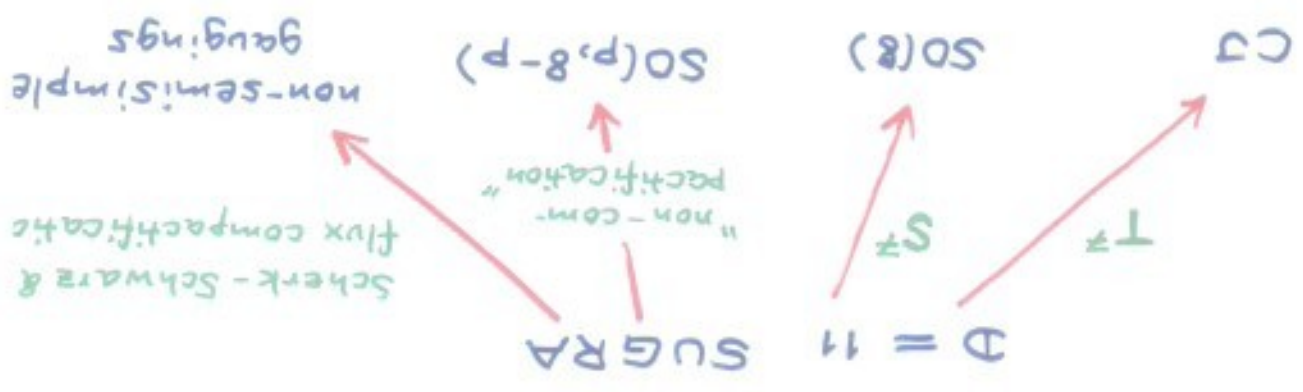 D = 11 SUGRA
T⁷
S⁷
"non-com-
pactification"
Scherk-Schwarz &
flux compactificatic
CJ
SO(8)
SO(p,8-p)
non-semisimple
gaugings